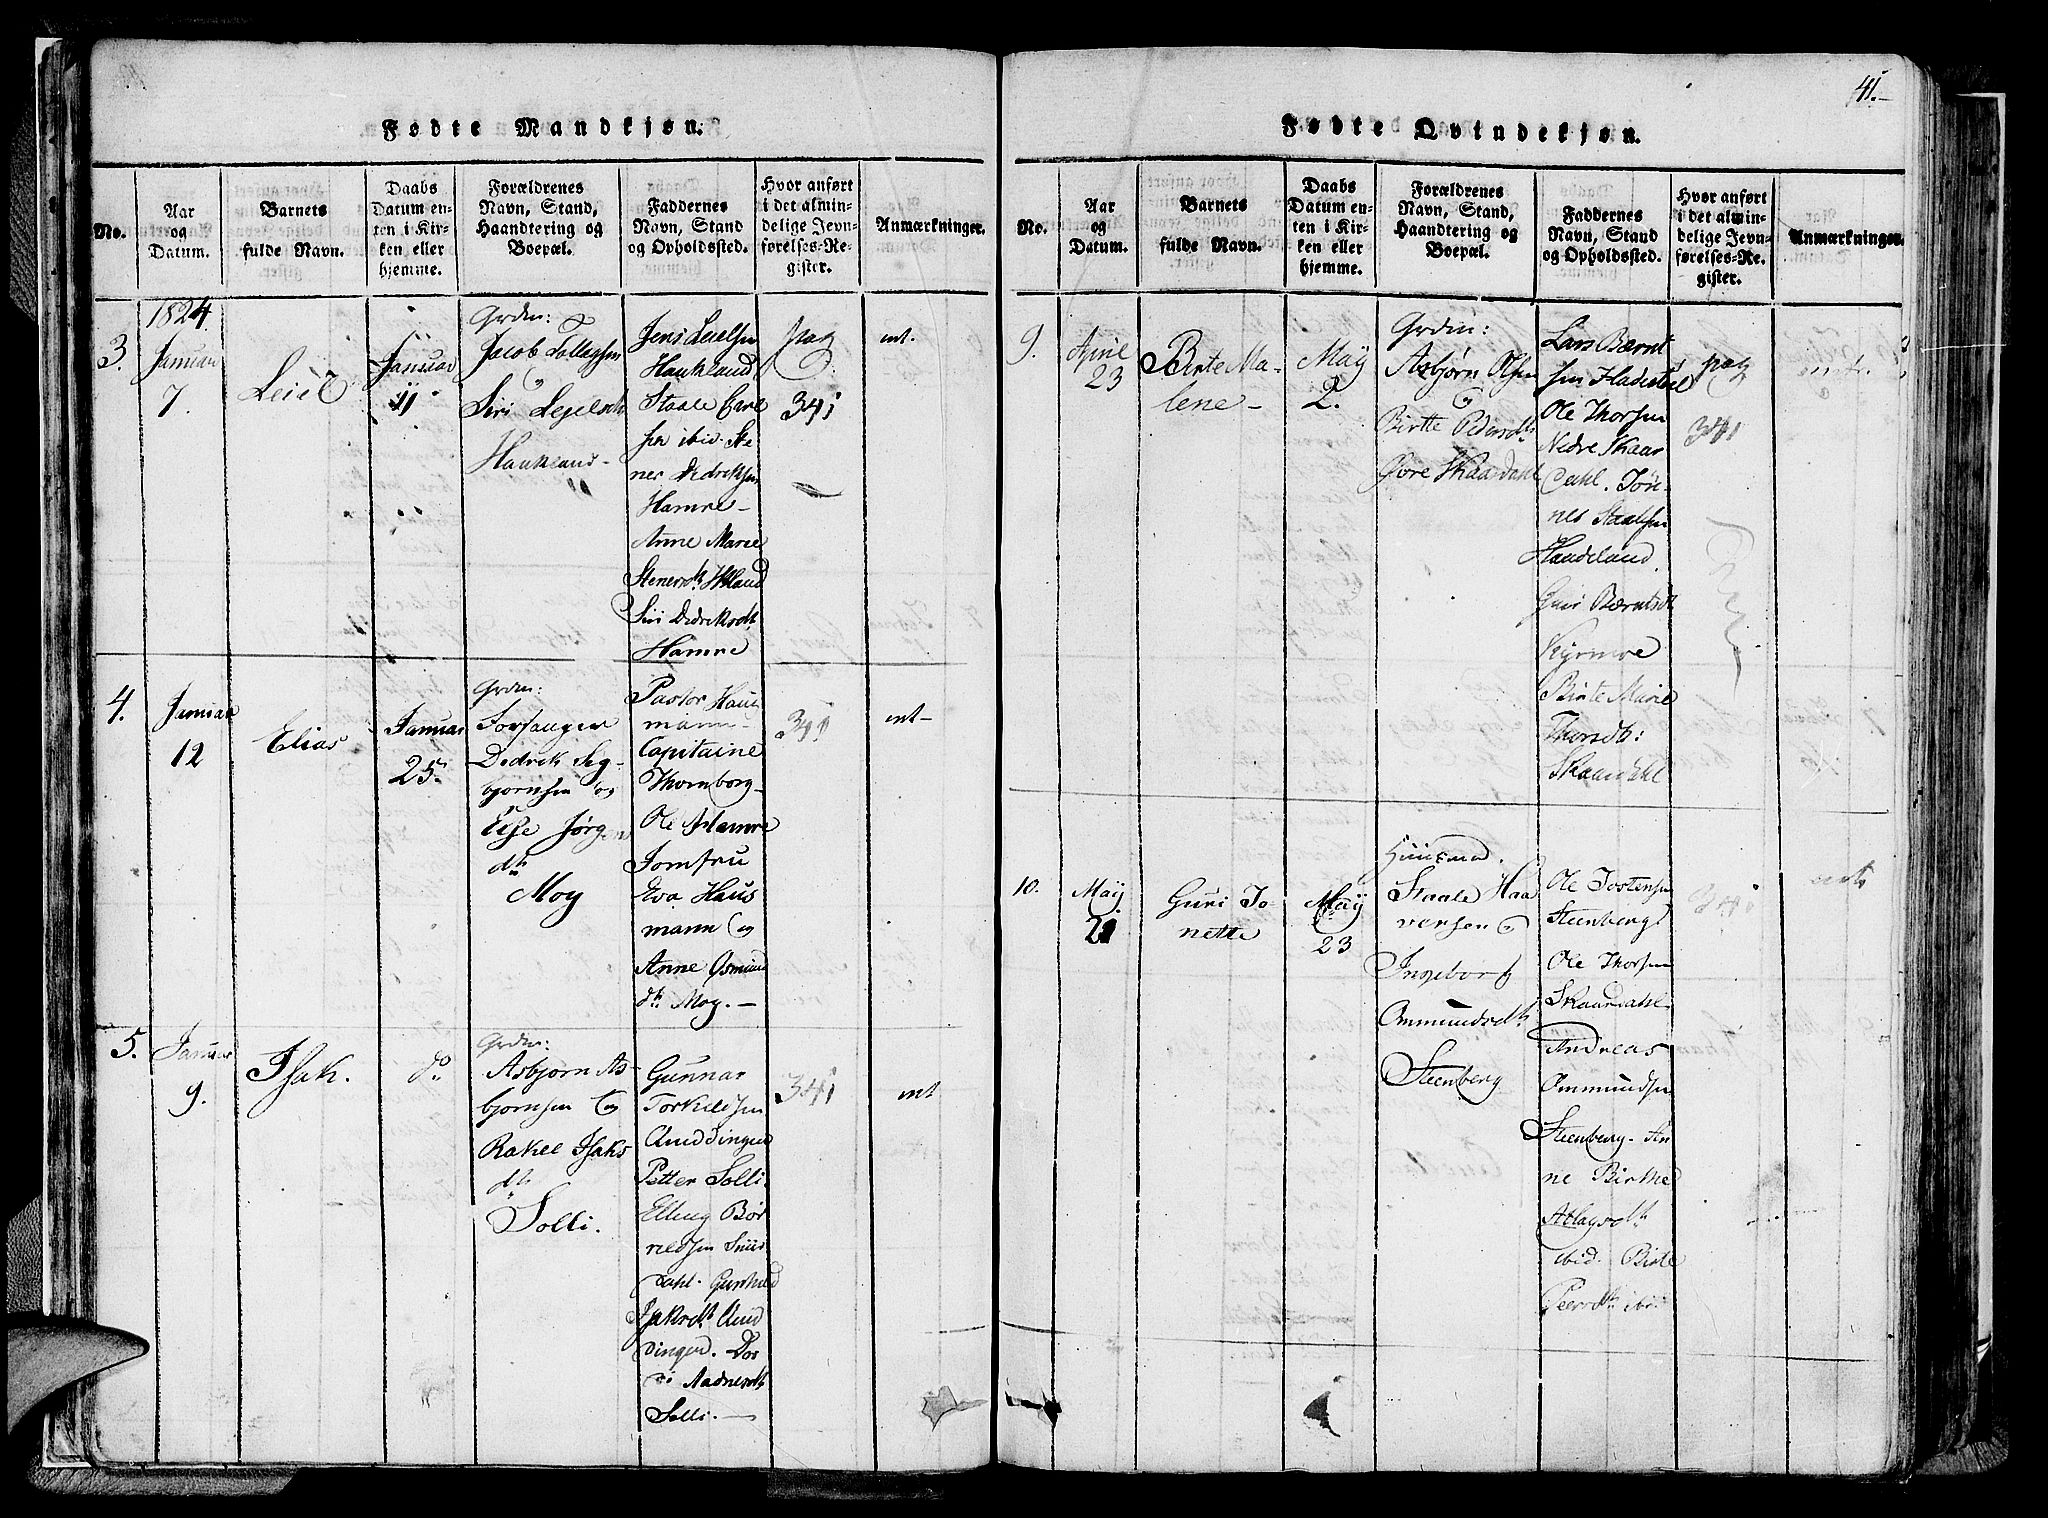 41.-
Fødte Mandkjøn.
No.
Aar
og
Datum.
Barnets
fulde Navn.
Daabs
Datum en-
ten i Kir-
ken eller
hjemme.
Forældrenes
Navn, Stand,
Haandtering og
Boepæl.
Faddernes
Navn, Stand
og Opholdssted.
Hvor anført
i det almin-
delige Jevn-
førelses-Re-
gister.
Anmærkninger.
3.
1824
Januar
7.
Januar
11
Grdm:
Jacob Tollagsen
og
Siri
Haukland-
Jens
Haukland
Staale
ibid. Ste-
ner Didriksen
Hamre-
Anne Marie
Stenersdtr
Siri Didriksdt.
Hamre
pag
341
int.
4.
Januar
12
Elias
Januar
25.
Grdm:
Forsanger
Didrik Seg-
bjørnsen og
Else Jørgens
dtr
Moy
Pastor Haus
mann-
Capitaine
Thornborg-
Ole Hamre
Jomfru
Eva Haus
mann og
Anne Osmund
dtr Moy.-
341
int-
5.
Januar
9.
Isak.
do
Grdm:
Asbjørn As-
bjørnsen og
Rakel Isaks
dtr
Solli.
Gunnar
Torkildsen
Petter Solli.
Elling Bør
rildsen
dahl. Gunhild
Isaksdt
dingen.
Aadnesdt
Solli.-
341
int
Fødte Qvindekjøn.
No.
Aar
og
Datum.
Barnets
fulde Navn.
Daabs
Datum en-
ten i Kir-
ken eller
hjemme.
Forældrenes
Navn, Stand,
Haandtering og
Boepæl.
Faddernes
Navn, Stand
og Opholdssted.
Hvor anført
i det almin-
delige Jevn-
førelses-Re-
gister.
Anmærkninger.
9.
April
23
Birte Ma-
lene-
Maÿ
2.
Grdm:
Asbjørn Olsen
og
Birtte Pedersdtr
Øvre Skaardahl
Lars Bærnt
sen
Ole Thorsen
Nedre Skaar
dahl. Tøn-
nes Staalesen
Haadeland.
Bærntsdt
Birte Marie
Thorsdt:
Skaardahl
pag
341
10.
Maÿ
21
Guri Jo-
nette
Maÿ
23
Huusmd.
Staale Haa
versen og
Ingeborg
Ommundsdtr
Steenberg
Ole Tostensen
Steenberg
Ole Thorsen
Skaardahl
Andreas
Ommundsen
Steenberg. An
ne Birthe
Atlagsdtr
ibid. Birte
Peersdtr ibid
341